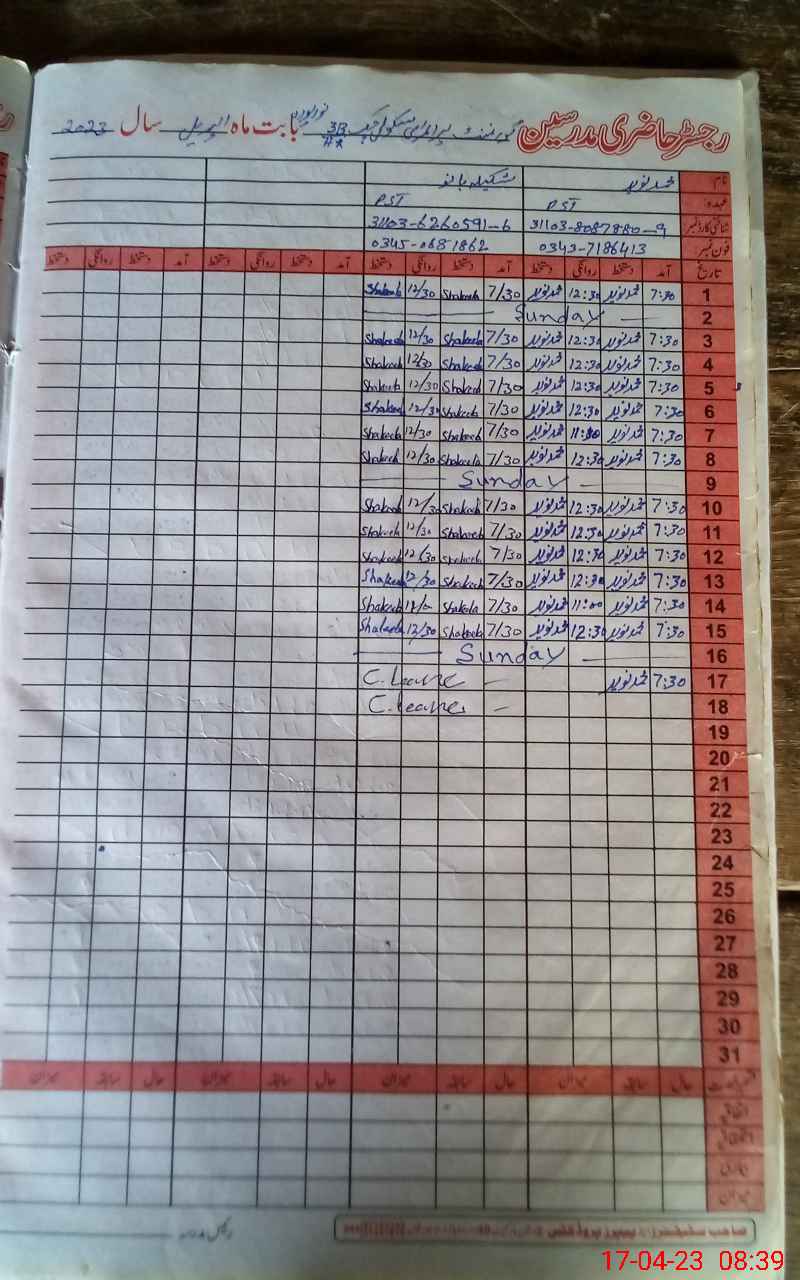 رجسٹر حاضری مدرسین گورنمنٹ پرائمری سکول چک 3B بابت ماہ اپریل سال 2023
نام محمد نوید شکیلہ بانو
عہدہ PST PST
شناختی کارڈ نمبر 31103-8087880-9 31103-6260591-6
فون نمبر 0343-7186413 0345-0681862
تاریخ آمد دستخط روانگی دستخط آمد دستخط روانگی دستخط آمد دستخط روانگی دستخط آمد دستخط روانگی دستخط
1 7:30 محمد نوید 12:30 محمد نوید 7/30 Shakeela 12/30 Shakeela
2 Sunday
3 7:30 محمد نوید 12:30 محمد نوید 7/30 Shakeela 12/30 Shakeela
4 7:30 محمد نوید 12:30 محمد نوید 7/30 Shakeela 12/30 Shakeela
5 7:30 محمد نوید 12:30 محمد نوید 7/30 Shakeela 12/30 Shakeela
6 7:30 محمد نوید 12:30 محمد نوید 7/30 Shakeela 12/30 Shakeela
7 7:30 محمد نوید محمد نوید 7/30 Shakeela 12/30 Shakeela
8 7:30 محمد نوید 12:30 محمد نوید 7/30 Shakeela 12/30 Shakeela
9 Sunday
10 7:30 محمد نوید 12:30 محمد نوید 7/30 Shakeela 12/30 Shakeela
11 7:30 محمد نوید 12:30 محمد نوید 7/30 Shakeela 12/30 Shakeela
12 7:30 محمد نوید 12:30 محمد نوید 7/30 Shakeela 12/30 Shakeela
13 7:30 محمد نوید 12:30 محمد نوید 7/30 Shakeela 12/30 Shakeela
14 7:30 محمد نوید 11:00 محمد نوید 7/30 Shakeela Shakeela
15 7:30 محمد نوید 12:30 محمد نوید 7/30 Shakeela 12/30 Shakeela
16 Sunday
17 7:30 محمد نوید C. leave
18 C. leave
19
20
21
22
23
24
25
26
27
28
29
30
31
حال سابقہ میزان حال سابقہ میزان حال سابقہ میزان حال سابقہ میزان
اتفاقی
میزان
17-04-23 08:39